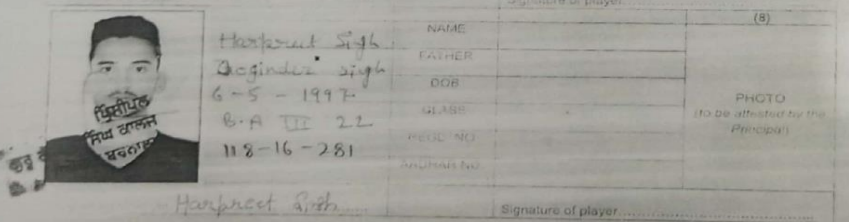 Signature of player
(8)
Harpreet Sigh
Joginder Sigh
6-5-1997
B.A III 22
118-16-281
Harpreet Sigh
NAME
FATHER
DOB
CLASS
REGD. NO.
AADHAR NO.
PHOTO
(to be attested by the
Principal)
ਪ੍ਰਿੰਸੀਪਲ
ਗੁਰੂ
ਸਿੰਘ ਕਾਲਜ
ਬਰਨਾਲਾ
Signature of player